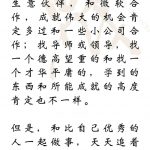 生意伙伴，和微软合
作，成就伟大的机会肯
定多过和一些小公司合
作；找导师或领导，找
一个德高望重的和找一
个才华平庸的，学到的
东西和所能成就的高度
肯定也不一样。
但是，和比自己优秀的
人一起做事，天天追着